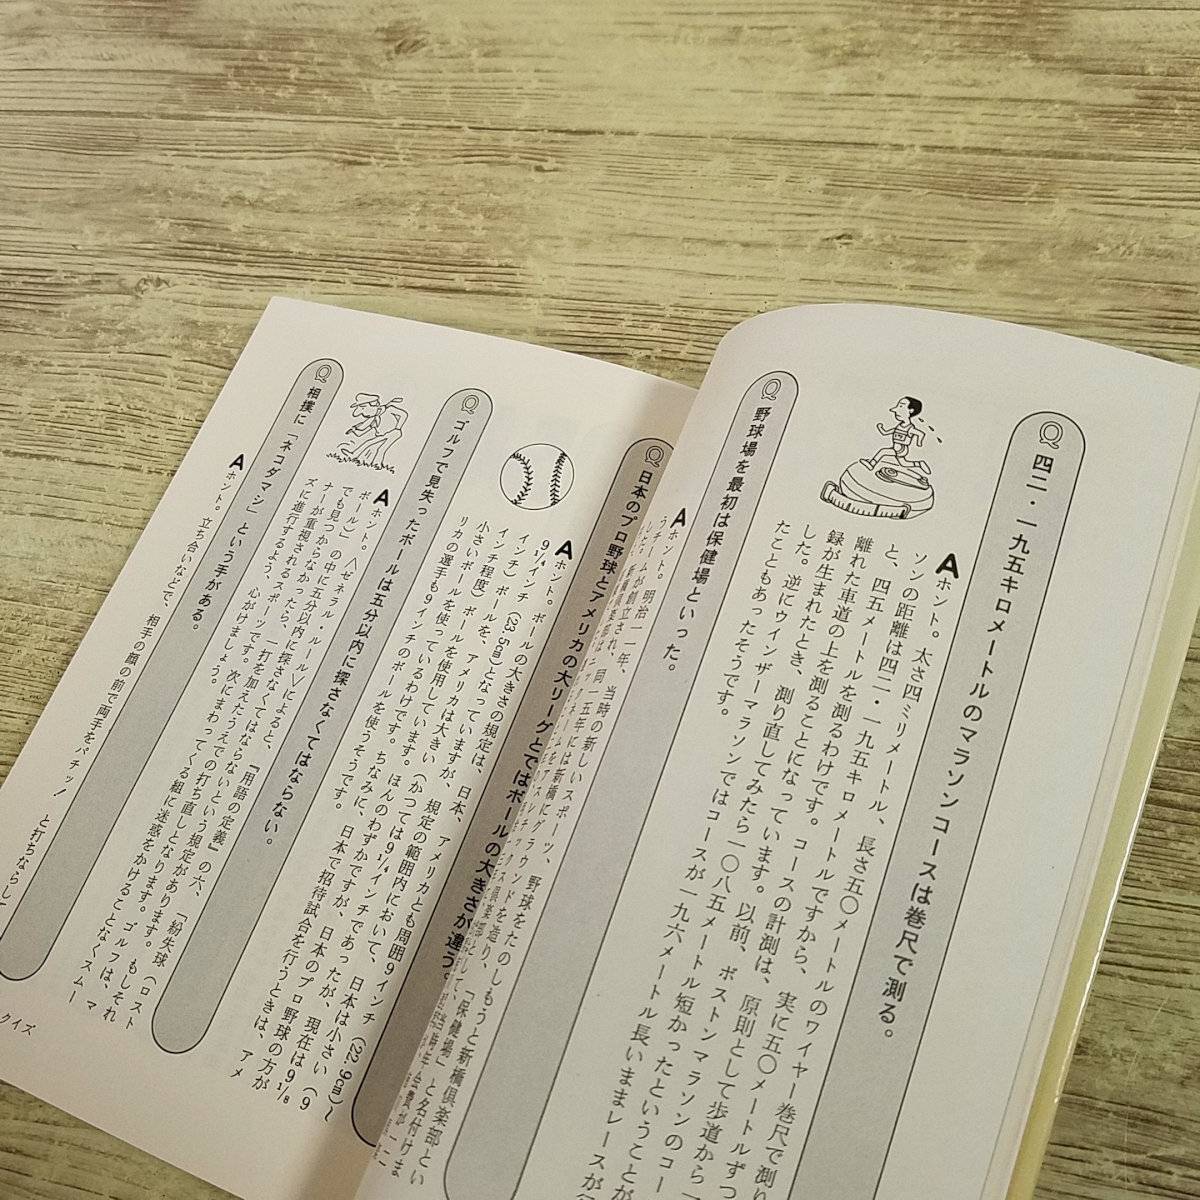 Q 四二・一九五キロメートルのマラソンコースは巻尺で測る。
Aホント。太さ四ミリメートル、長さ五〇メートルのワイヤー巻尺で測り
ソンの距離は四二・一九五キロメートルですから、実に五〇メートルずつ
と、四五メートルを測るわけです。コースの計測は、原則として歩道から一
離れた車道の上を測ることになっています。以前、ボストンマラソンのコー
録が生まれたとき、測り直してみたら一〇八五メートル短かったということが
した。逆にウインザーマラソンではコースが一九六メートル長いままレースが
たこともあったそうです。
Q 野球場を最初は保健場といった。
Aホント。明治一一年、当時の新しいスポーツ、野球をたのしもうと新橋倶楽部とい
うチーム
Q 日本のプロ野球とアメリカの大リーグとではボールの大きさが違う。
Aホント。ボールの大きさの規定は、日本、アメリカとも周囲9インチ(22.9cm)〜
9 1/4インチ(23.5cm)となっていますが、規定の範囲内において、日本は小さい(9
インチ程度)ボールを、アメリカは大きい(かつては9 1/4インチであったが、現在は9 1/8
小さいボールを使っているわけです。ほんのわずかですが、日本のプロ野球の方が
リカの選手も9インチのボールを使うそうです。ちなみに、日本で招待試合を行うときは、アメ
Q ゴルフで見失ったボールは五分以内に探さなくてはならない。
Aホント。〈ゼネラル・ルール〉によると、『用語の定義』の六、「紛失球(ロスト
ボール)」の中に五分以内に探さなくてはならないという規定があります。もしそれ
でも見つからなかったら、一打を加えたうえでの打ち直しとなります。ゴルフは、マ
ナーが重視されるスポーツです。次にまわってくる組に迷惑をかけることなくスムー
ズに進行するよう、心がけましょう。
Q 相撲に「ネコダマシ」という手がある。
Aホント。立ち合いなどで、相手の顔の前で両手をパチッ! と打ちならして
クイズ